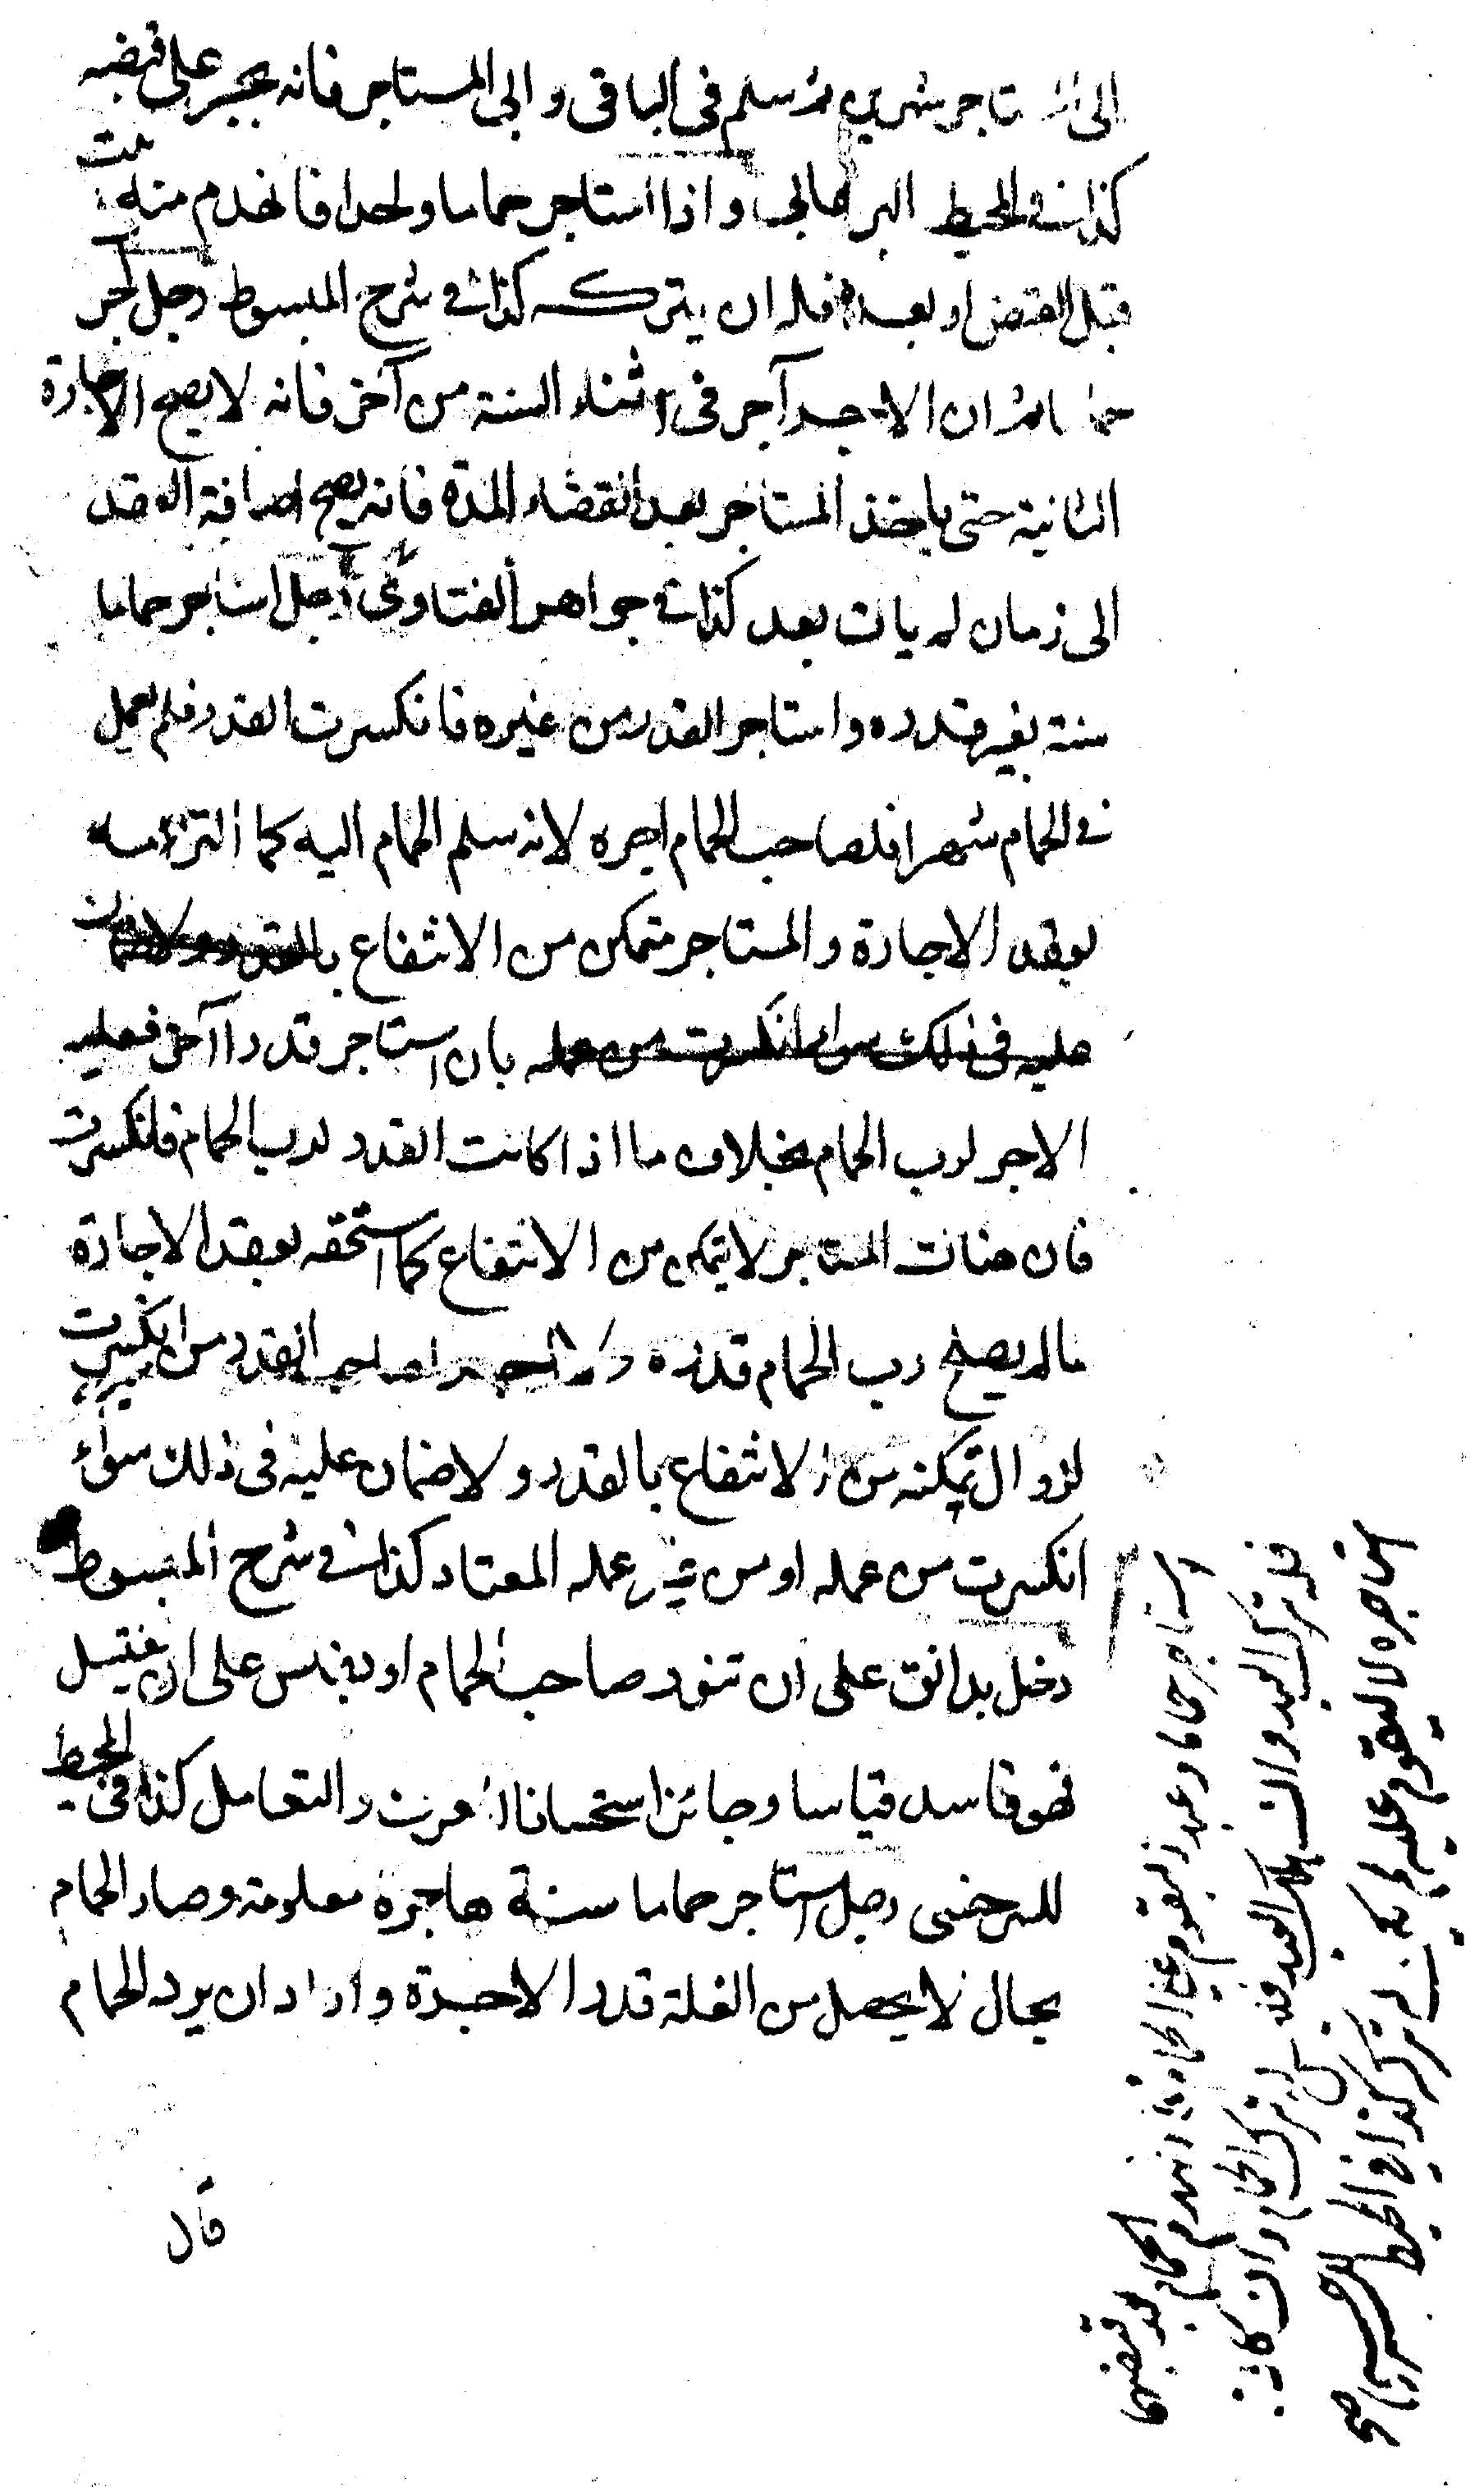 الى تاجر شهرين ثم سلم فى الباقى وابى المستاجر فانه يجبر على قبضه
كذا فى المحيط البرهانى واذا استاجر حماما واحدا فانهدم منه بيت
قبل القبض او بعده فله ان يتركه كذا فى شرح المبسوط رجل آجر
حماما ثم ان الاجير آجر فى اثناء السنة من آخر فانه لا يصح الاجارة
الثانية حتى ياخذ المستاجر بعد انقضاء المدة فانه يصح اضافة العقد
الى زمان لم يات بعد كذا فى جواهر الفتاوى رجل استاجر حماما
سنة بغير قدره واستاجر القدر من غيره فانكسرت القدر فلم يعمل
فى الحمام شهرا فلصاحب الحمام اجره لانه سلم الحمام اليه كما التزمه
بعقد الاجارة والمستاجر متمكن من الانتفاع بالقدر ولا ضمان
عليه فى ذلك سواء انكسرت من عمله بان استاجر قدرا آخر فعليه
الاجر لرب الحمام بخلاف ما اذا كانت القدر لرب الحمام فانكسرت
فان هناك المستاجر لا يتمكن من الانتفاع كما استحقه بعقد الاجارة
مالم يصلح رب الحمام قدره ولا اجر لصاحب القدر من انكسرت
لزوال تمكنه من الانتفاع بالقدر ولا ضمان عليه فى ذلك سواء
انكسرت من عمله او من غير عمله المعتاد كذا فى شرح المبسوط
دخل بدانق على ان تنور صاحب الحمام او بفلس على ان يغتسل
فهو فاسد قياسا وجائز استحسانا للعرف والتعامل كذا فى المحيط
للسرخسى رجل استاجر حماما سنة باجرة معلومة وصار الحمام
بحال لا يحصل من الغلة قدر الاجرة واراد ان يرد الحمام
قال
استاجر حماما وعبدا ليقوم على الحمام فانهدم الحمام بعد قبضهما
فله ترك العبد وان هلك العبد فليس له ترك الحمام وان كان
استاجره لا ليقوم عليه لم يكن له ترك كذا فى المحيط السرخسى